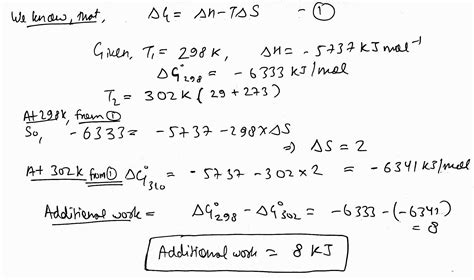 We know, that, ΔG = ΔH-TΔS —①
Given, T₁ = 298K, ΔH = -5737 KJ mol⁻¹
ΔG°₂₉₈ = -6333 KJ/mol
T₂ = 302K (29+273)
At 298K, from ①
So, -6333 = -5737 -298×ΔS
⇒ ΔS = 2
At 302K from ① ΔG°₃₁₀ = -5737 -302×2 = -6341 KJ/mol
Additional work = ΔG°₂₉₈ - ΔG°₃₀₂ = -6333-(-6341)
= 8
Additional work = 8 KJ